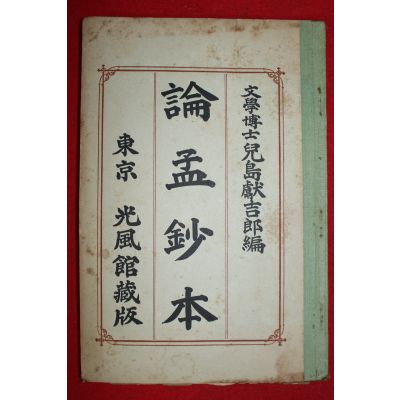 文學博士兒島獻吉郎編
論孟鈔本
東京 光風館藏版